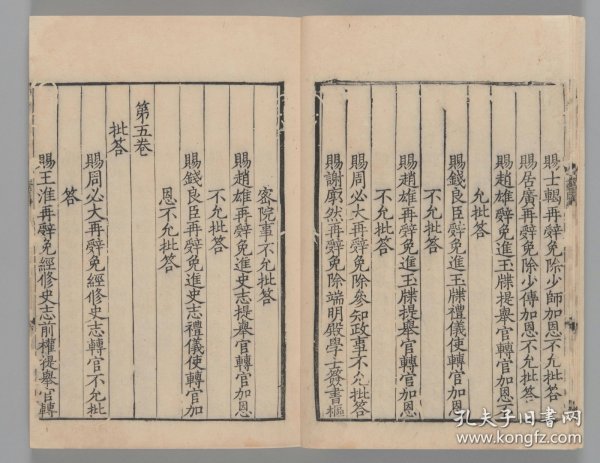 賜士輵再辭免除少師加恩不允批答
賜居廣再辭免除少傅加恩不允批答
賜趙雄辭免進玉牒提舉官轉官加恩不
允批答
賜錢良臣辭免進玉牒禮儀使轉官加恩
不允批答
賜趙雄再辭免進玉牒提舉官轉官加恩
不允批答
賜周必大再辭免除參知政事不允批答
賜謝廓然再辭免除端明殿學士簽書樞
密院事不允批答
賜趙雄再辭免進史志提舉官轉官加恩
不允批答
賜錢良臣再辭免進史志禮儀使轉官加
恩不允批答
第五卷
批答
賜周必大再辭免經修史志轉官不允批
答
賜王淮再辭免經修史志前權提舉官轉
孔夫子旧书网
www.kongfz.com